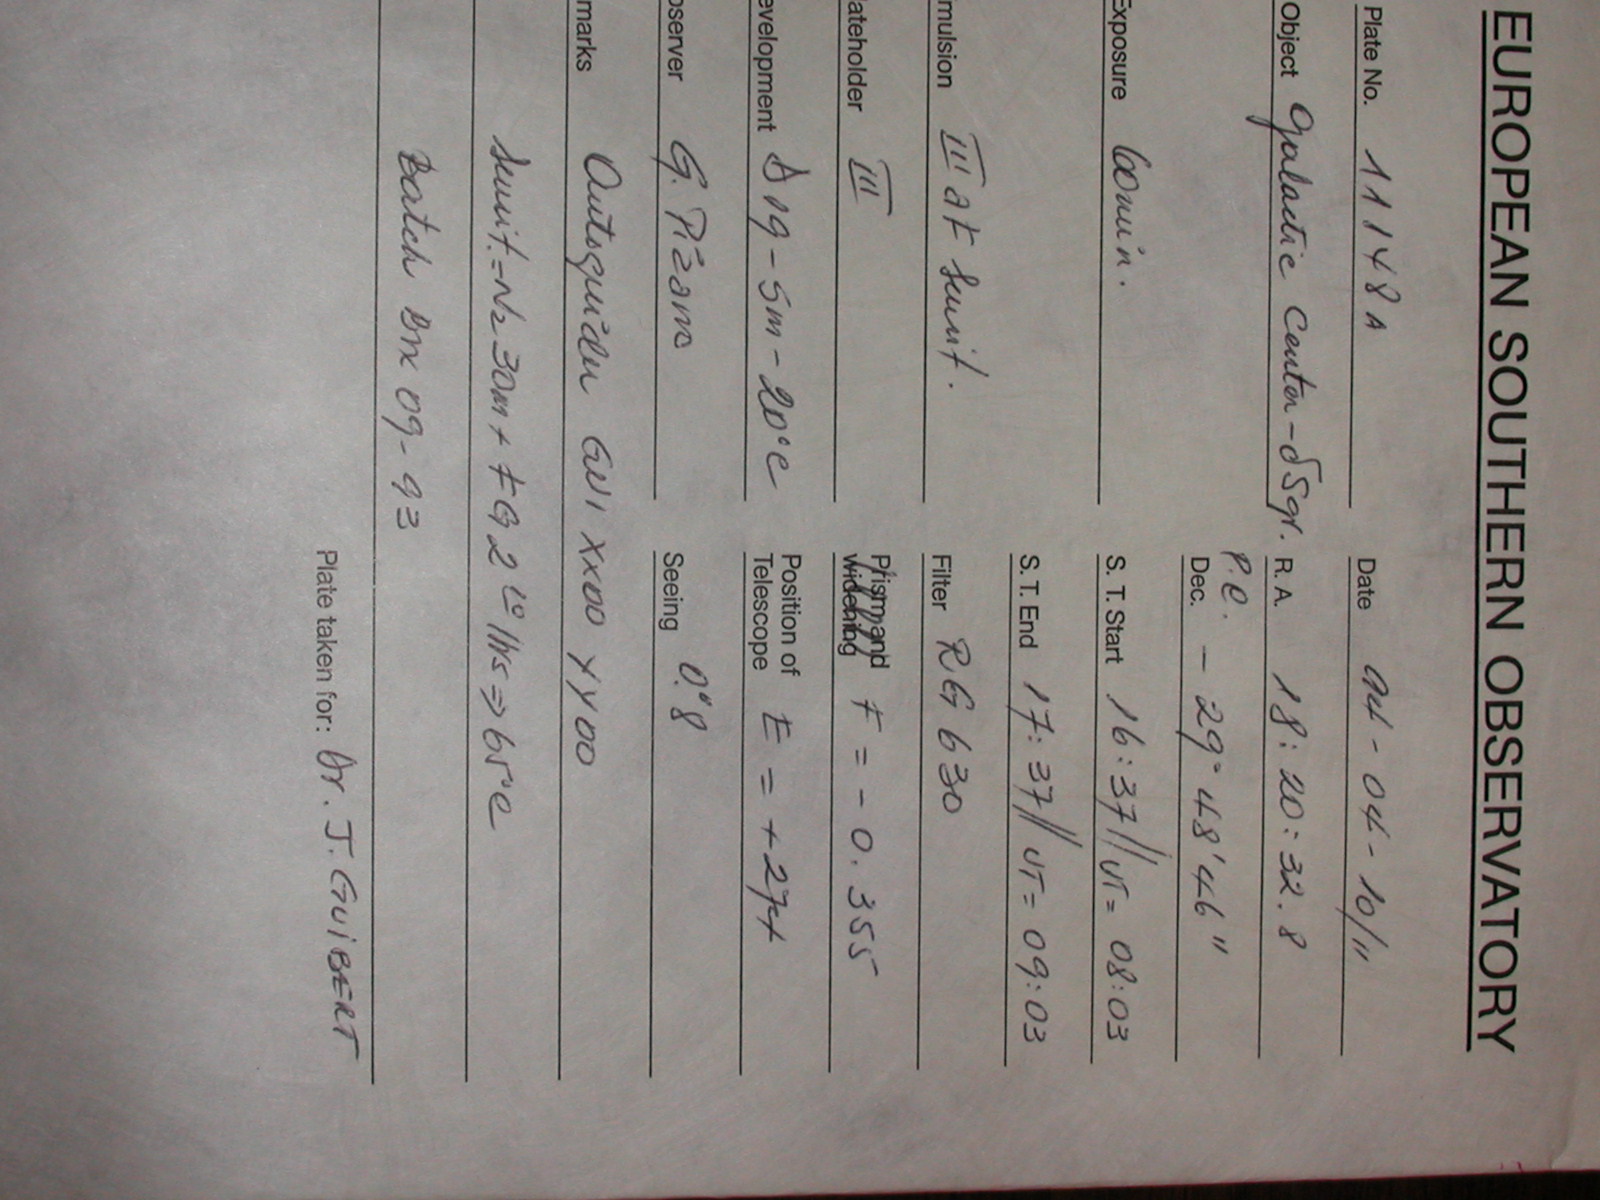 EUROPEAN SOUTHERN OBSERVATORY
Plate No. 11148A
Date 94-04-10/11
Object Galactic Center-δSgr.
R. A. 18:20:32.8
P.C.
Dec. -29°48'46"
Exposure 60min.
S. T. Start 16:37//UT= 08:03
S. T. End 17:37//UT= 09:03
mulsion III aF Sensit.
Filter RG 630
ateholder III
Prism and widening F = -0.355
evelopment D19-5m-20°C
Position of Telescope E = +274
oserver G. Pizarro
Seeing 0."8
marks Autoguider GW1 XX00 YY00
Sensit.=N2 30m + FG 2 1hs => 65°C
Batch 09-93
Plate taken for: Dr. J. GUIBERT